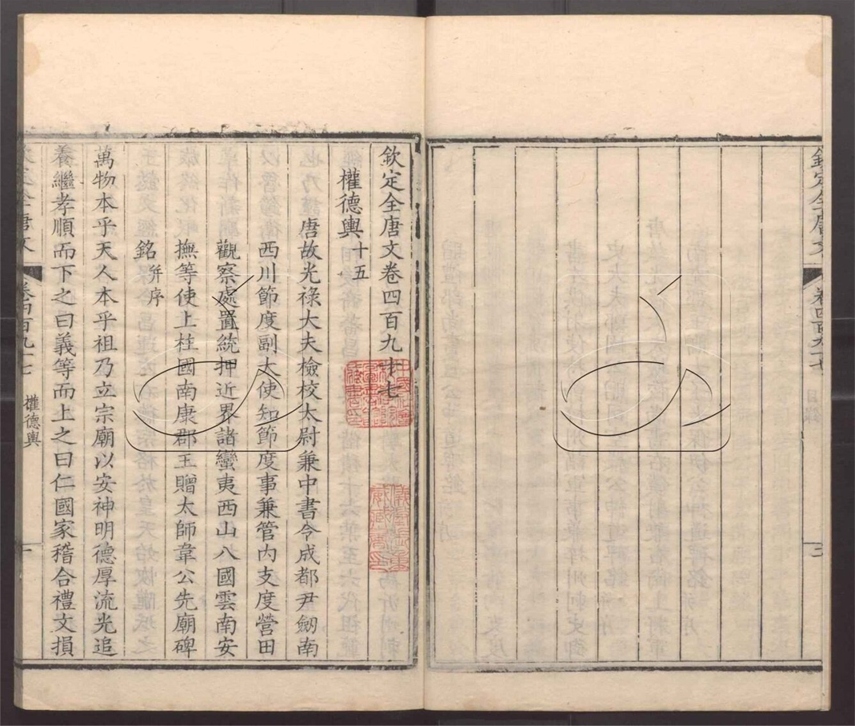 欽定全唐文卷四百九十七
權德輿十五
唐故光祿大夫檢校太尉兼中書令成都尹劒南
西川節度副大使知節度事兼管內支度營田
觀察處置統押近界諸蠻夷西山八國雲南安
撫等使上柱國南康郡王贈太師韋公先廟碑
銘并序
萬物本乎天人本乎祖乃立宗廟以安神明德厚流光追
養繼孝順而下之曰義等而上之曰仁國家稽合禮文損
欽定全唐文
卷四百九十七
權德輿
一
欽定全唐文
卷四百九十七
三